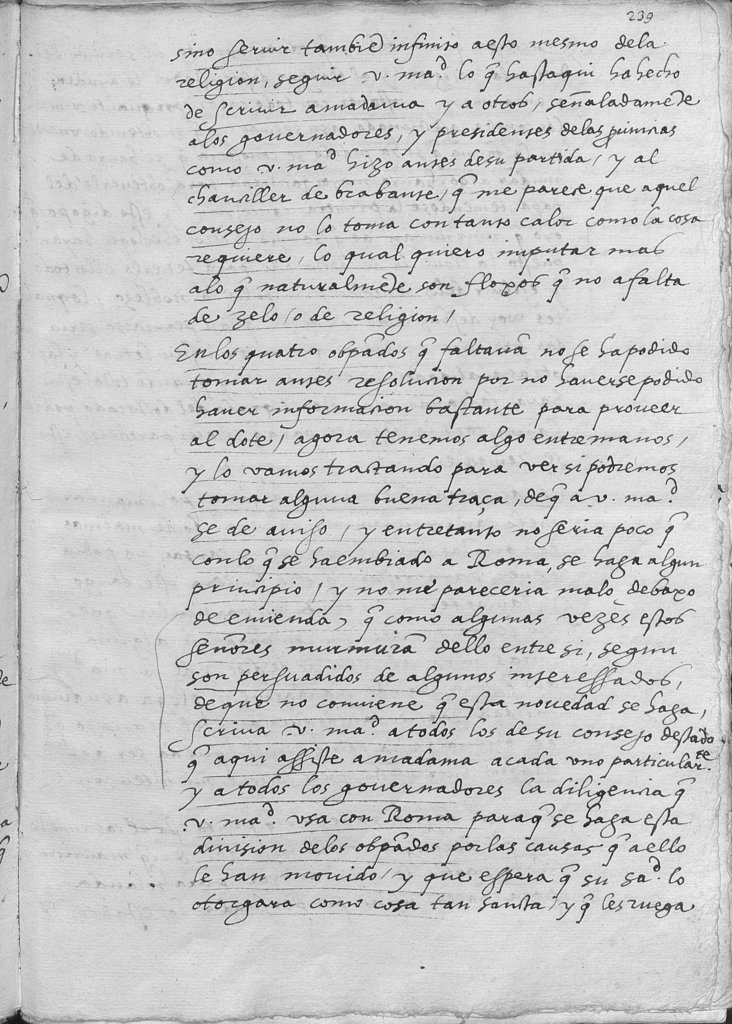 239
sino servir tambiē infinito aesto mesmo dela
religion, seguir v. ma.d lo q̄ hastaqui ha hecho
de scrivir a madama y a otros, señaladamēte
alos governadores, y presidentes delas provincias
como v. ma.d hizo antes desu partida, y al
chanciller de brabante, q̄ me parece que aquel
consejo no lo toma con tanto calor como la cosa
requiere, lo qual quiero imputar mas
alo q̄ naturalmēte son floxos q̄ no a falta
de zelo, o de religion,
En los quatro obp̄ados q̄ faltavā no se ha podido
tomar antes resolucion por no haverse podido
haver informacion bastante para proveer
al dote, agora tenemos algo entremanos,
y lo vamos tractando para ver si podremos
tomar alguna buena traça, deq̄ a v. ma.d
se de aviso, y entretanto no seria poco q̄
conlo q̄ se ha embiado a Roma, se haga algun
principio, y no me pareceria malo debaxo
de emienda, q̄ como algunas vezes estos
señores murmurā dello entre si, segun
son persuadidos de algunos interessados,
deque no conviene q̄ esta novedad se haga,
scriva v. ma.d a todos los de su consejo destado
q̄ aqui assiste a madama a cada uno particularse.
y a todos los governadores la diligencia q̄
v. ma.d usa con Roma paraq̄ se haga esta
division delos obp̄ados por las causas q̄ a ello
le han movido, y que espera q̄ su sa.d lo
otorgara como cosa tan sancta, y q̄ les ruega